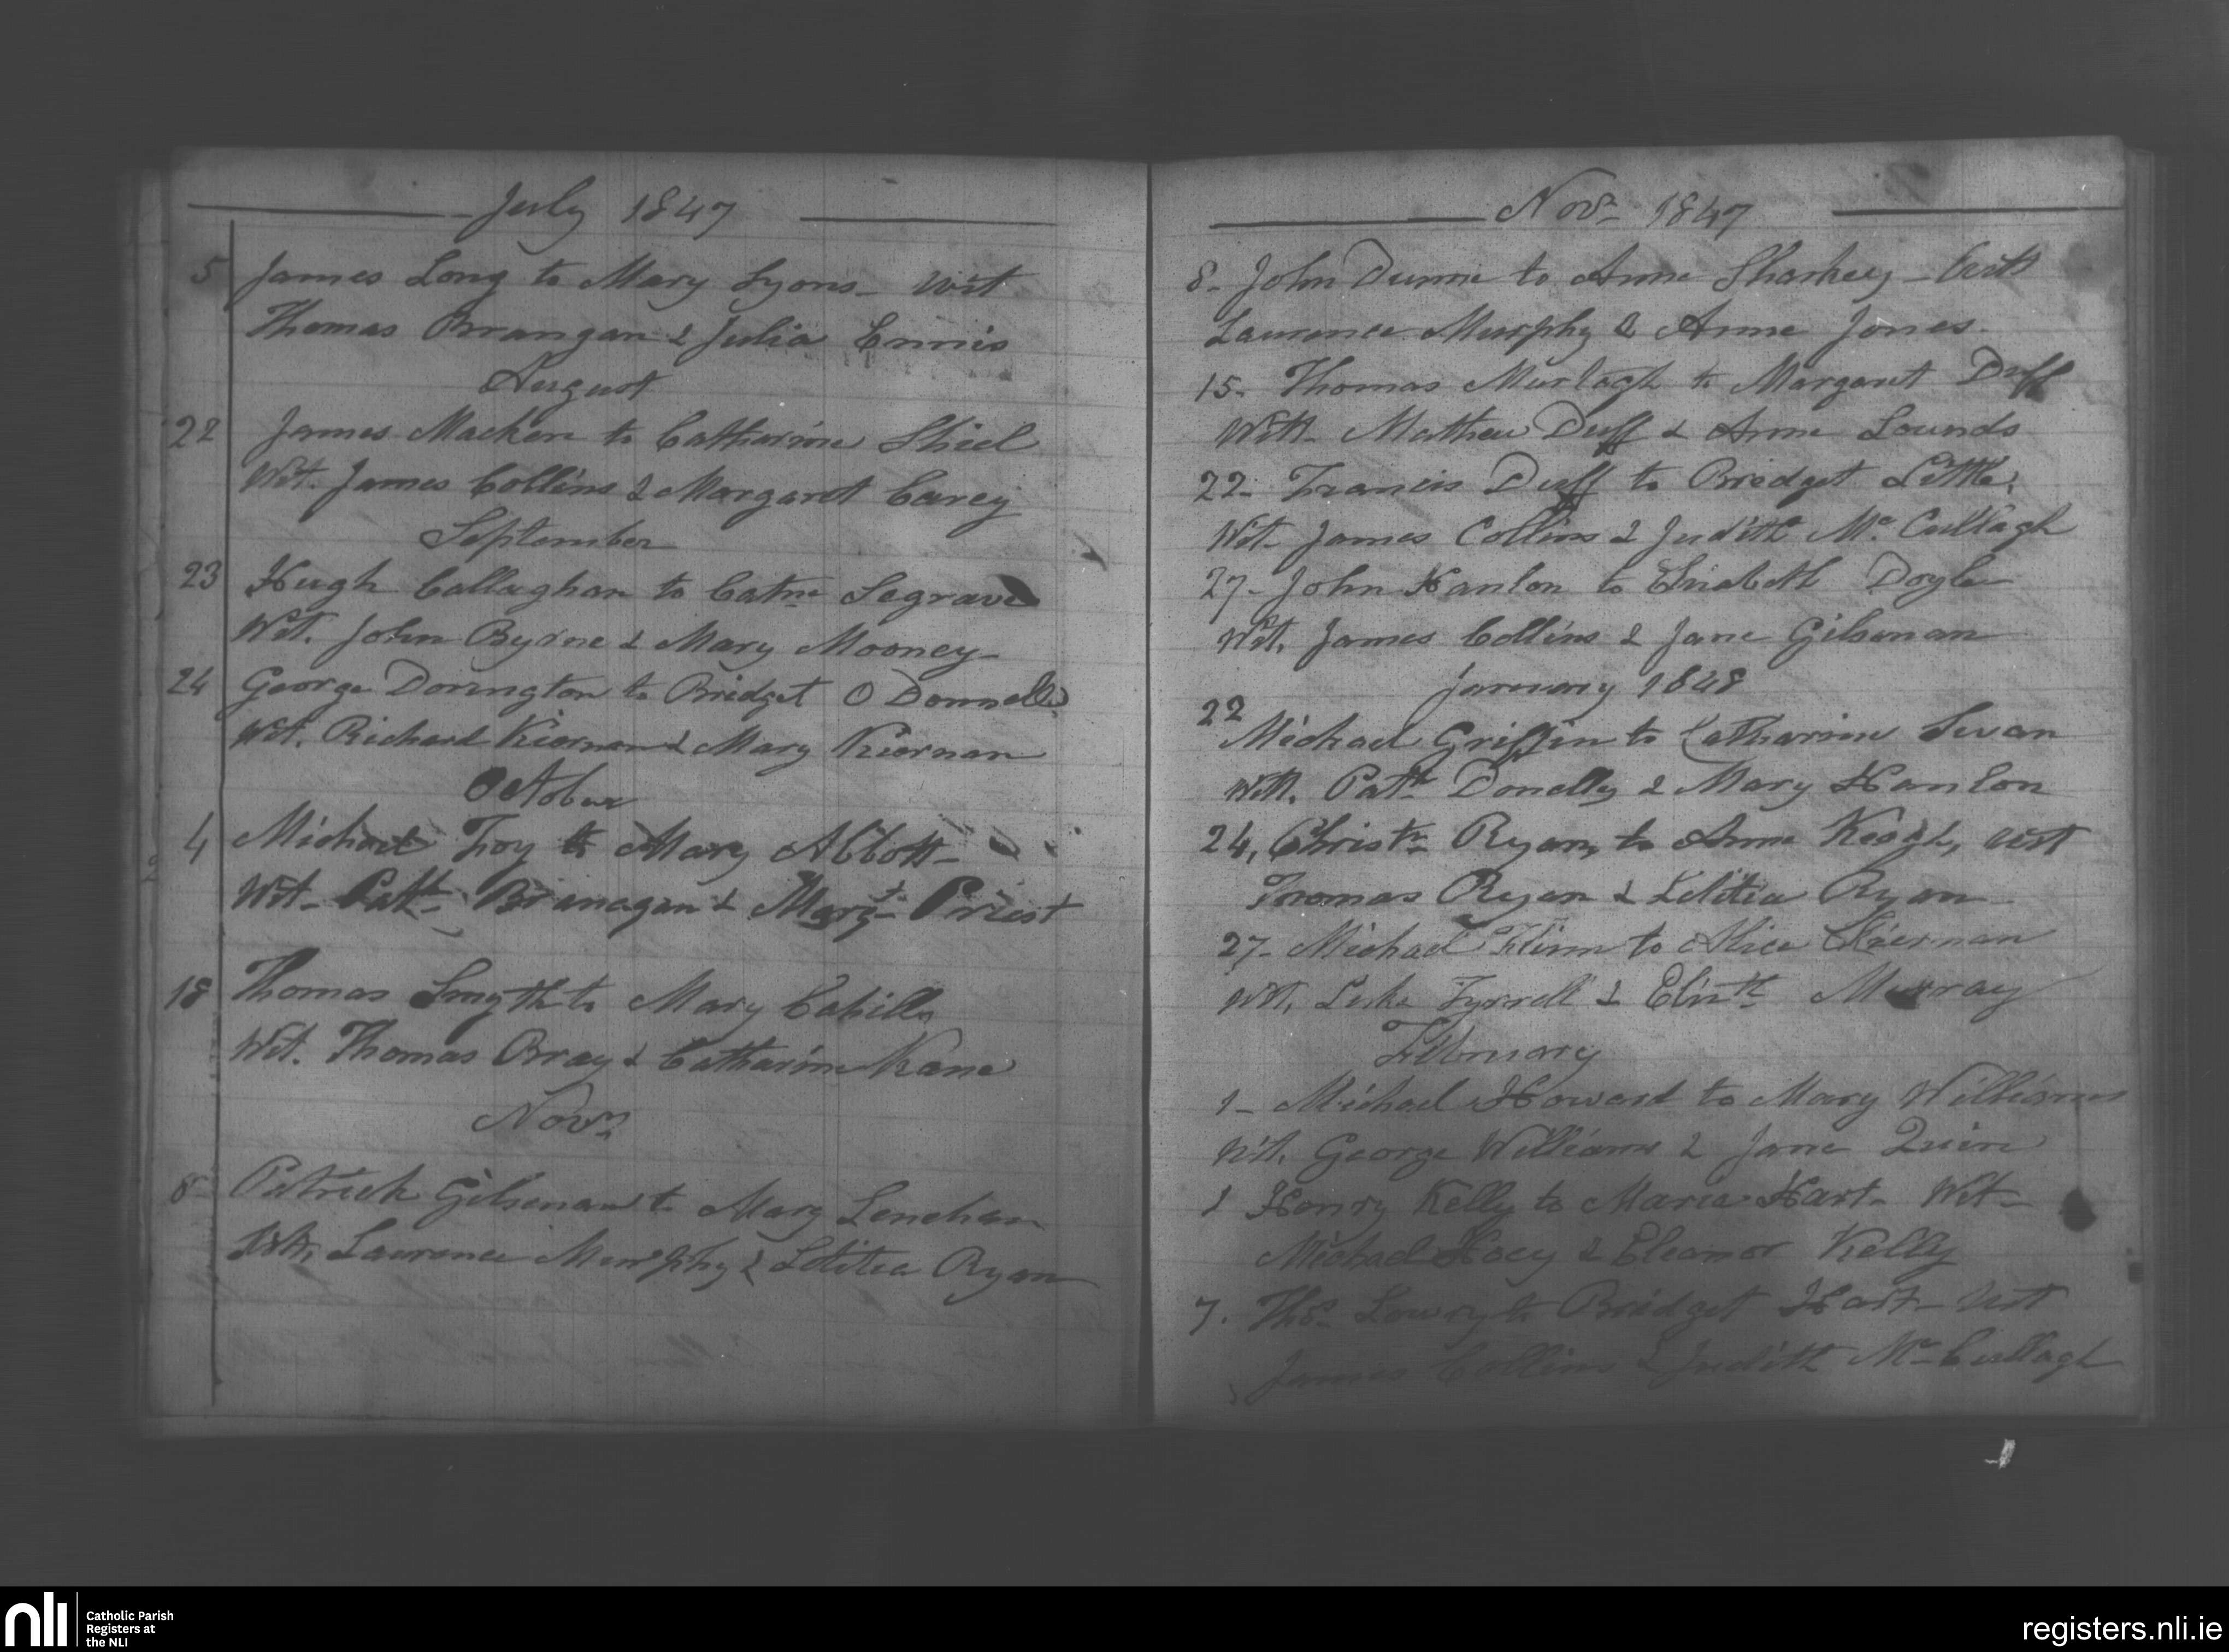 July 1847
5 James Long to Mary Lyons - Wit
Thomas Brangan & Julia Ennis
August
22 James Macken to Catharine Shiel
Wit. James Collins & Margaret Carey
September
23 Hugh Callaghan to Catne Segrave
Wit. John Byrne & Mary Mooney -
24 George Dorington to Bridget O Donnell
Wit. Richard Kiernan & Mary Kiernan
October
4 Michael Troy to Mary Abbott -
Wit - Patk Branagan & Margt Priest
18 Thomas Smyth to Mary Cahill
Wit. Thomas Bray & Catharine Kane
Novr
8 Patrick Gilsenan to Mary Lenehan
Witt. Laurence Murphy & Letitia Ryan
Novr 1847
8 - John Dunne to Anne Sharkey - Witt
Laurence Murphy & Anne Jones.
15 - Thomas Murtagh to Margaret Duff
Witt - Mathew Duff & Anne Lounds
22 - Francis Duff to Bridget Little.
Wit - James Collins & Judith Mc Cullagh
27 - John Hanlon to Elisabeth Doyle
Wit. James Collins & Jane Gilsenan
January 1848
22 Michael Griffin to Catharine Swan
Witt. Patk Donelly & Mary Hanlon
24, Christr Ryan, to Anne Keogh, Wit
Thomas Ryan & Letitia Ryan -
27 - Michael Flinn to Alice Kiernan
Wit, Luke Tyrrell & Elizth Murray
February
1 - Michael Howard to Mary Williams
Wit. George Williams & Jane Quinn
1 Henry Kelly to Maria Hart - Wit -
Michael Hoey & Eleanor Kelly
7. Thos Lowry to Bridget Hart - Wit
James Collins & Judith Mc Cullagh
nli
Catholic Parish
Registers at
the NLI
registers.nli.ie